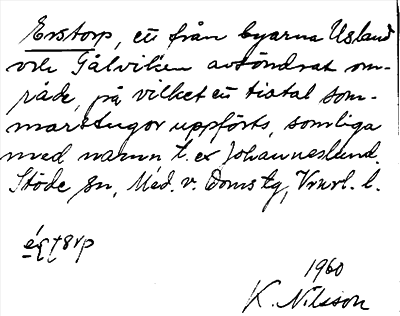 Erstorp, ett från byarna Usland
och Gålviken avsöndrat om-
råde, på vilket ett tiotal som-
marstugor uppförts, somliga
med namn t. ex Johanneslund.
Stöde sn, Med. v. Domstg, Vnrl. l.
1960
K. Nilsson